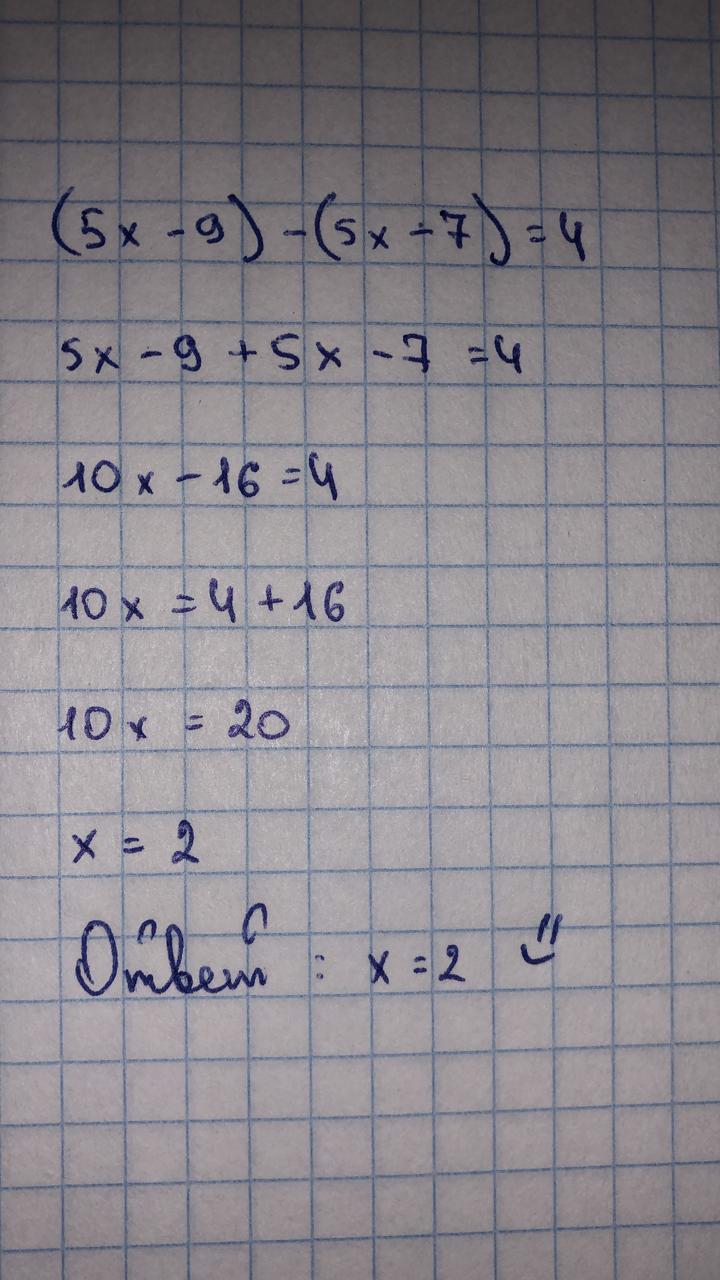 (5x - 9) - (5x - 7) = 4
5x - 9 + 5x - 7 = 4
10x - 16 = 4
10x = 4 + 16
10x = 20
x = 2
Ответ : x = 2